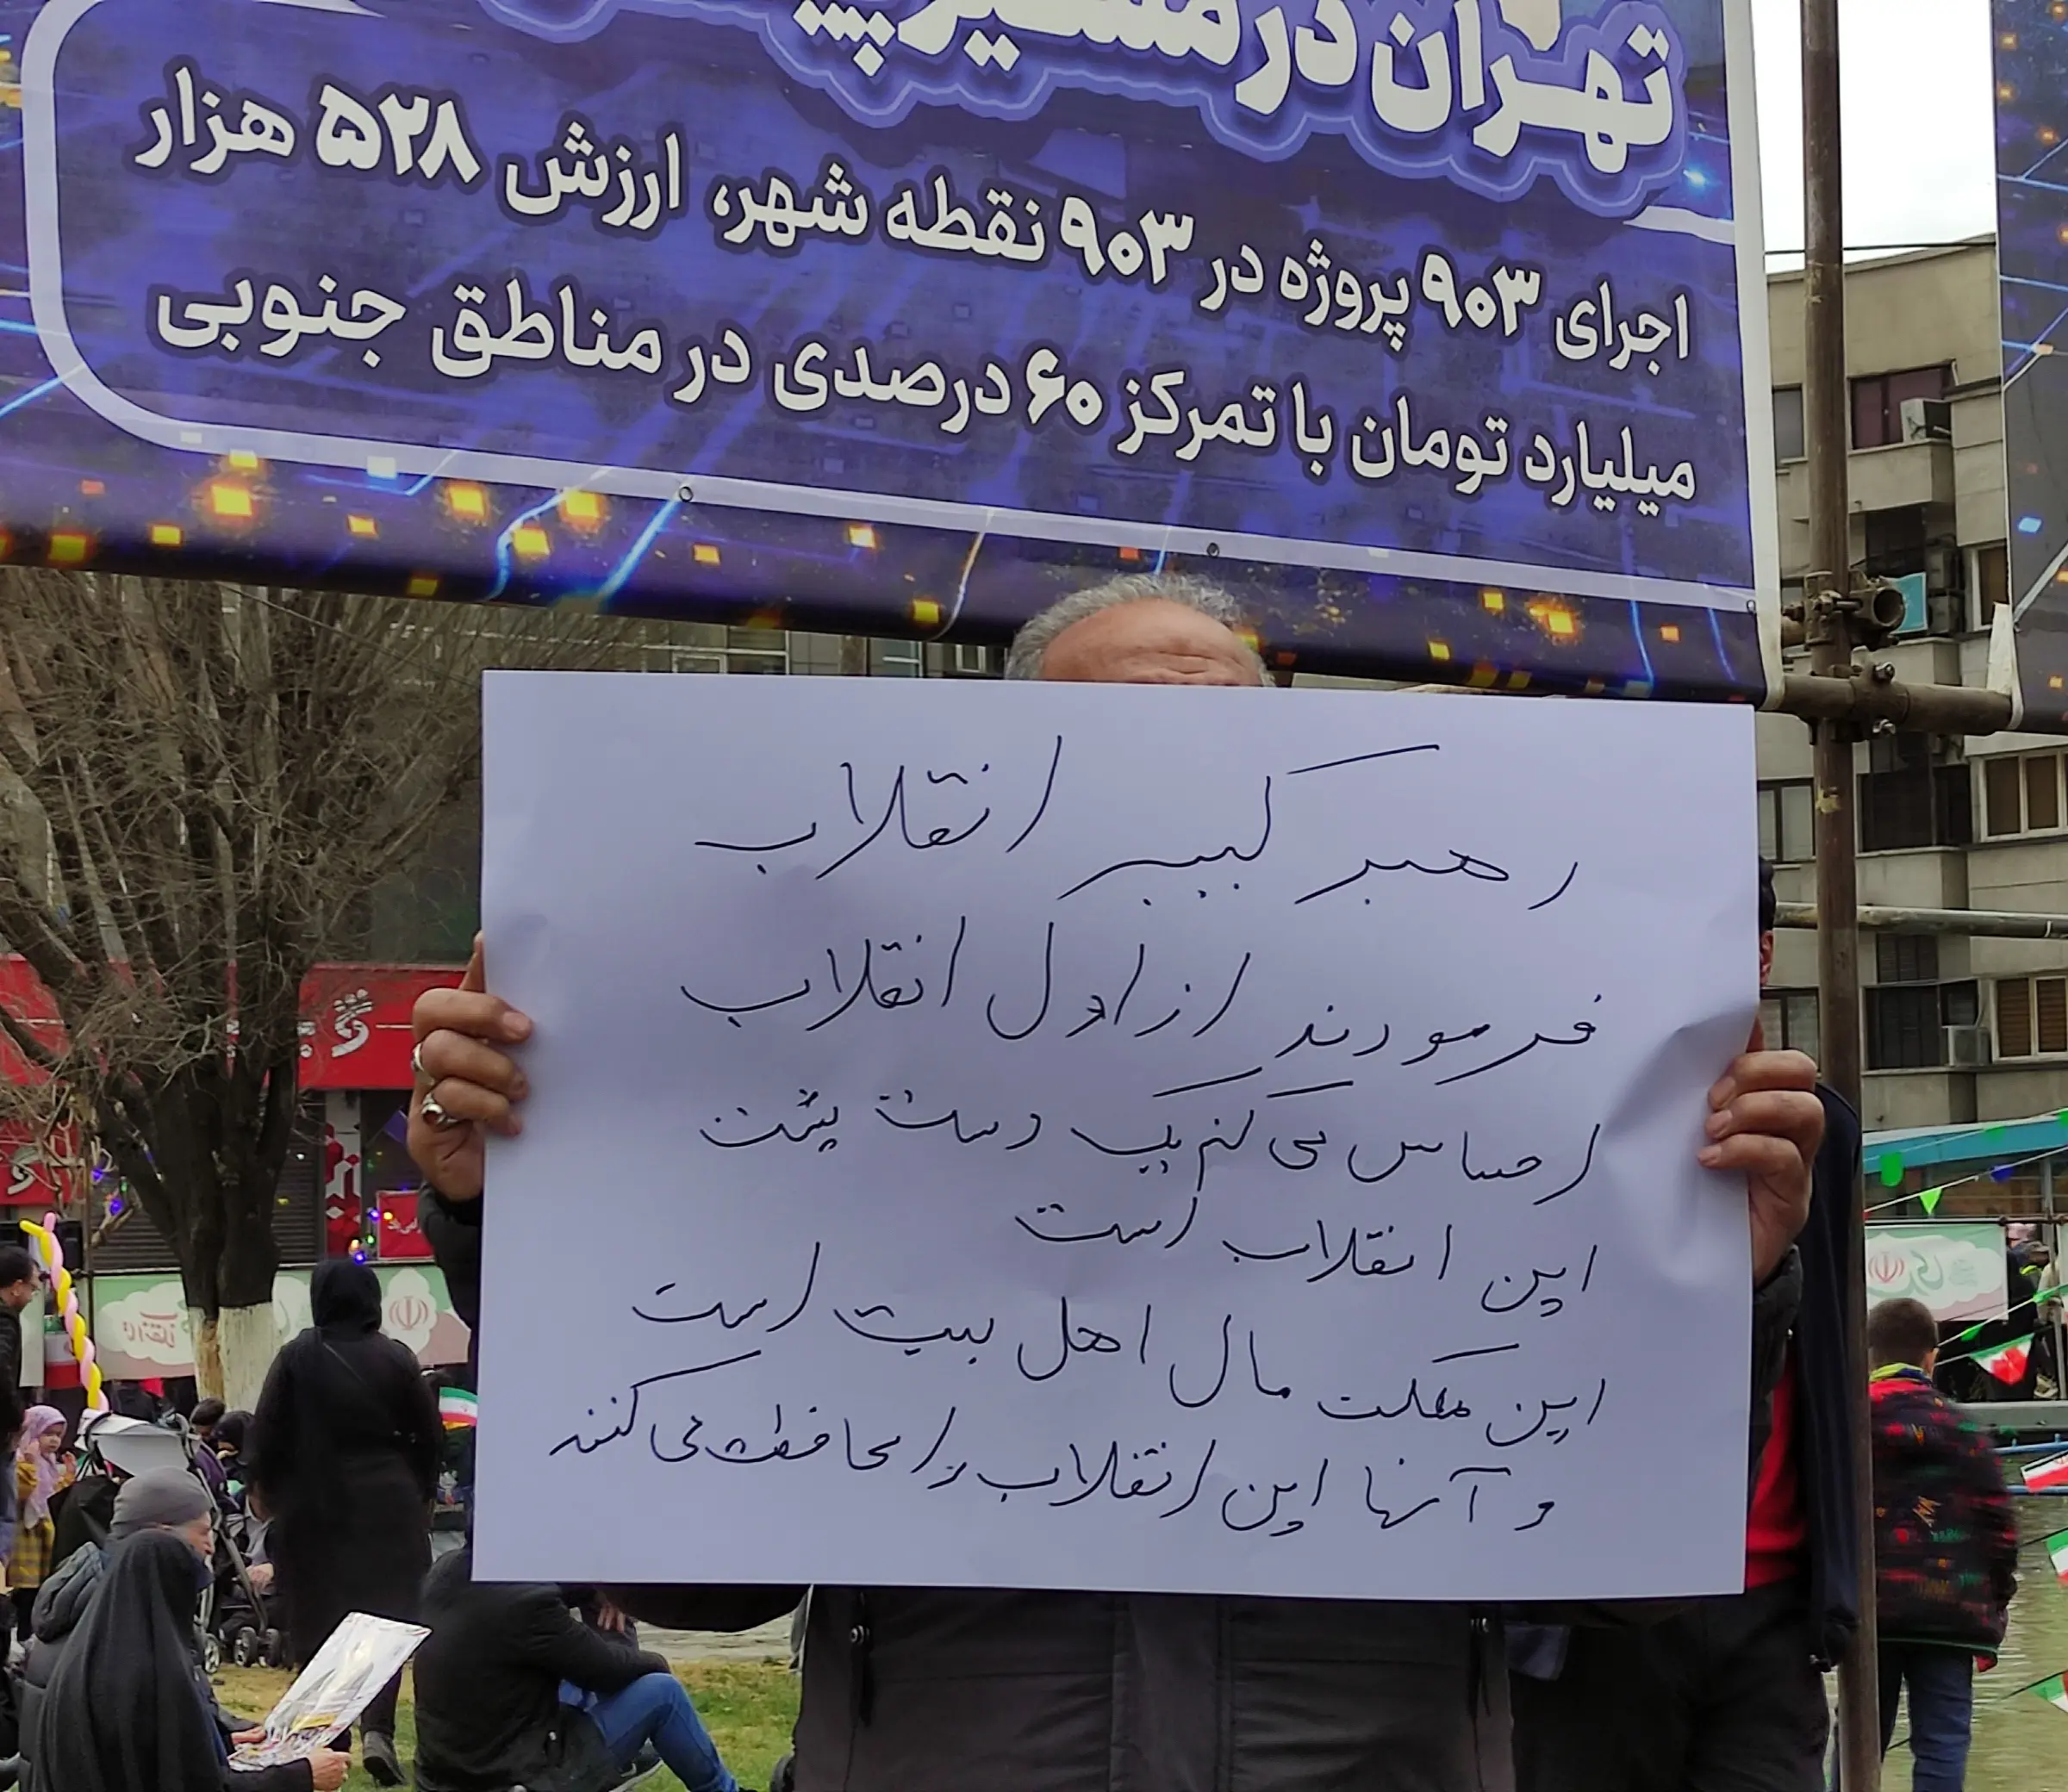 تهران در مسیر
اجرای ۹۰۳ پروژه در ۹۰۳ نقطه شهر، ارزش ۵۲۸ هزار
میلیارد تومان با تمرکز ۶۰ درصدی در مناطق جنوبی
رهبر کبیر انقلاب
فرمودند از اول انقلاب
احساس می کنم یک دست پشت
این انقلاب است
این مملکت مال اهل بیت است
و آنها این انقلاب را محافظت می کنند